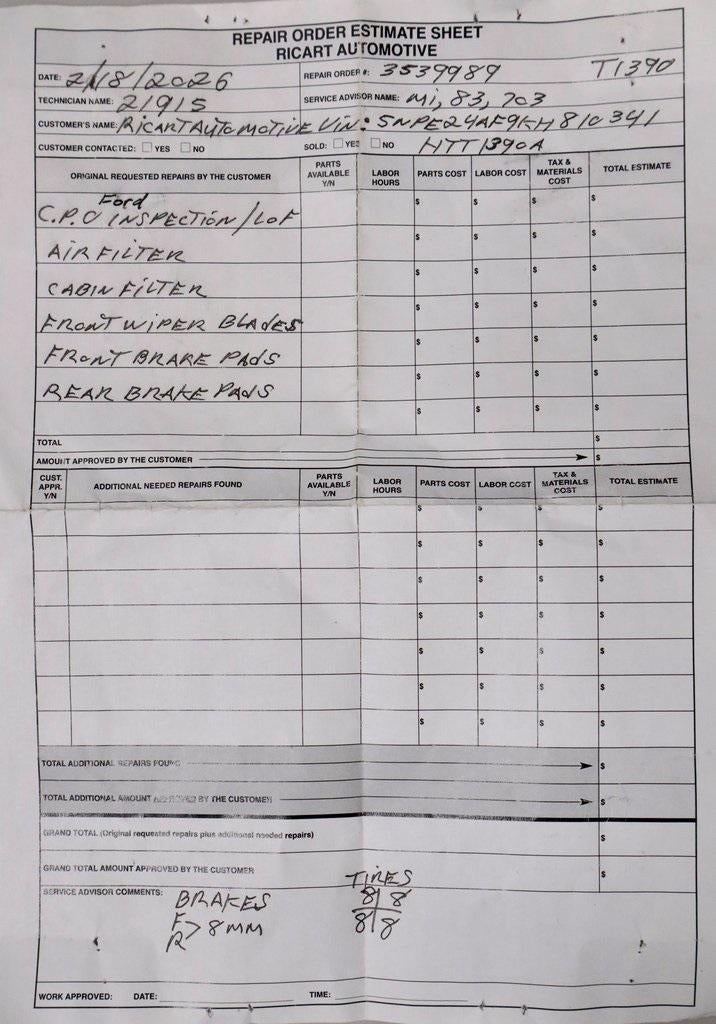 REPAIR ORDER ESTIMATE SHEET
RICART AUTOMOTIVE
DATE: 2/18/2026 REPAIR ORDER #: 3539989 T1390
TECHNICIAN NAME: 21915 SERVICE ADVISOR NAME: Mi, 83, 703
CUSTOMER'S NAME: RICART AUTOMOTIVE VIN: 5NPE24AF9KH810341
CUSTOMER CONTACTED: YES NO SOLD: YES NO HTT1390A
ORIGINAL REQUESTED REPAIRS BY THE CUSTOMER PARTS AVAILABLE Y/N LABOR HOURS PARTS COST LABOR COST TAX & MATERIALS COST TOTAL ESTIMATE
Ford
C.P.O INSPECTION/LOF $ $ $ $
AIR FILTER $ $ $ $
CABIN FILTER $ $ $ $
FRONT WIPER BLADES $ $ $ $
FRONT BRAKE PADS $ $ $ $
REAR BRAKE PADS $ $ $ $
$ $ $ $
TOTAL $
AMOUNT APPROVED BY THE CUSTOMER $
CUST. APPR. Y/N ADDITIONAL NEEDED REPAIRS FOUND PARTS AVAILABLE Y/N LABOR HOURS PARTS COST LABOR COST TAX & MATERIALS COST TOTAL ESTIMATE
$ $ $ $
$ $ $ $
$ $ $ $
$ $ $ $
$ $ $ $
$ $ $ $
$ $ $ $
TOTAL ADDITIONAL REPAIRS FOUND $
TOTAL ADDITIONAL AMOUNT APPROVED BY THE CUSTOMER $
GRAND TOTAL (Original requested repairs plus additional needed repairs) $
GRAND TOTAL AMOUNT APPROVED BY THE CUSTOMER $
SERVICE ADVISOR COMMENTS:
BRAKES TIRES
F 8|8
R > 8MM 8|8
WORK APPROVED: DATE: TIME: